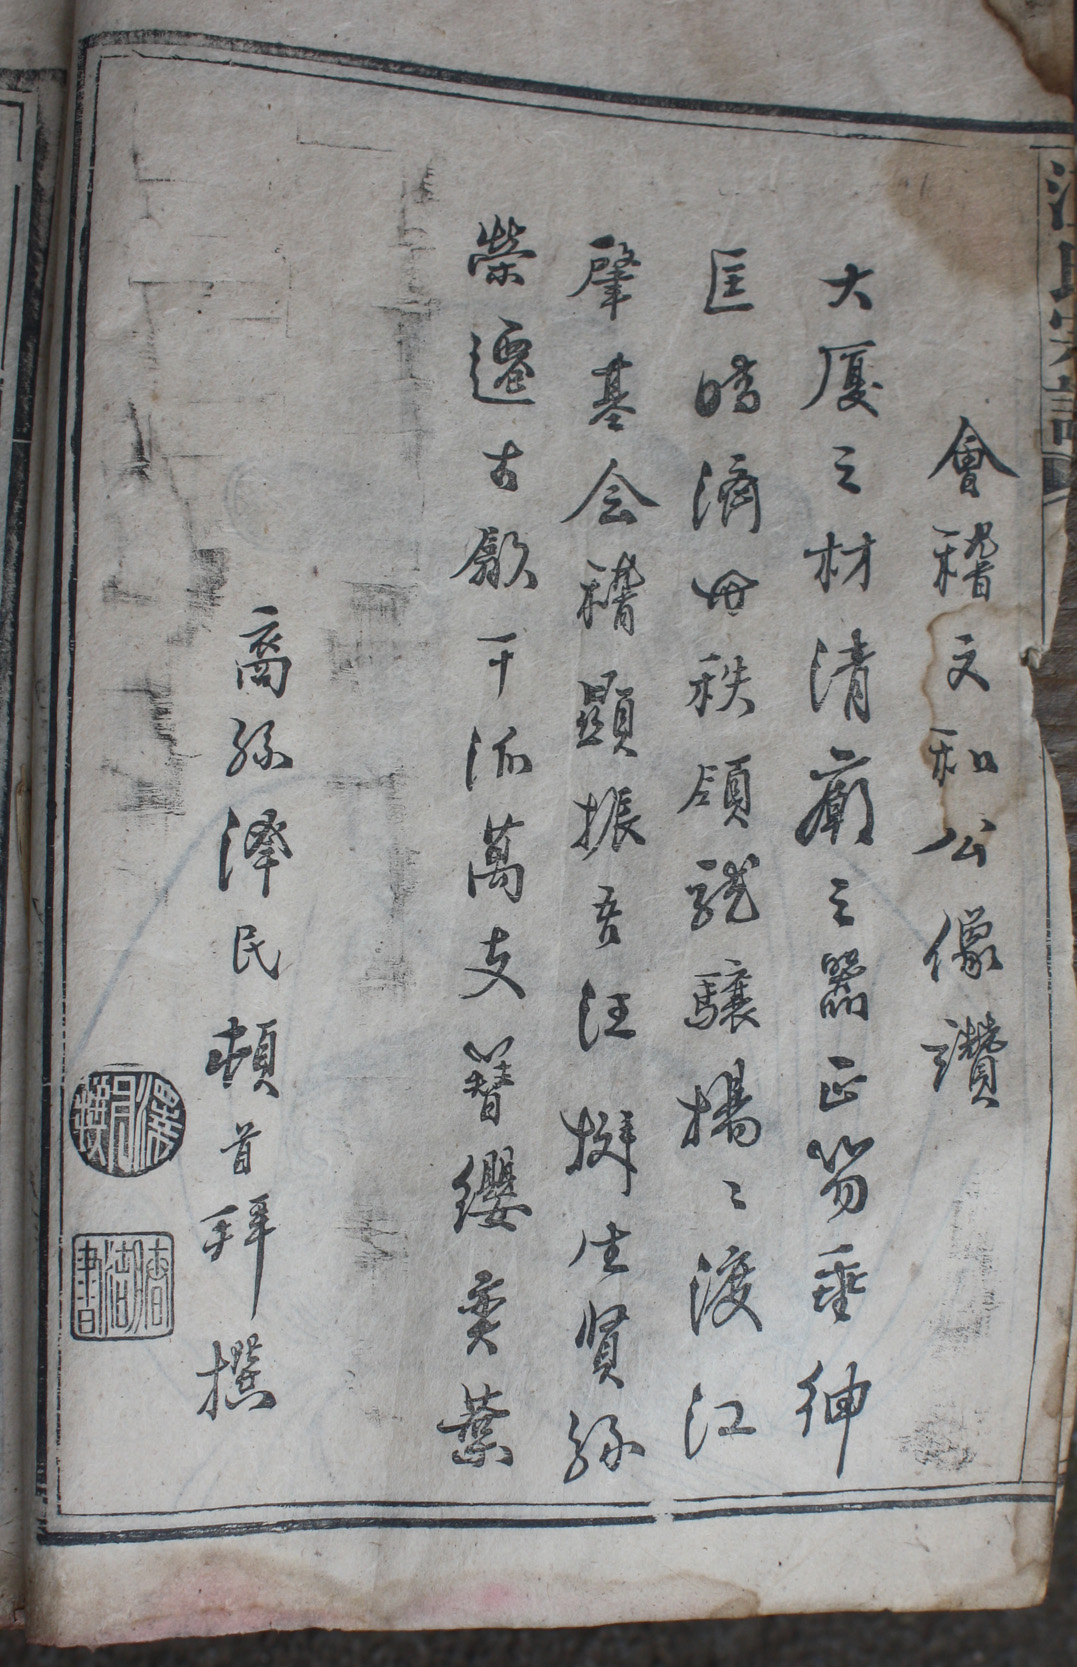 汪氏宗譜
會稽文和公像讚
大厦之材清廟之器正笏垂紳
匡時濟世秩領龍驤揚〻渡江
肇基会稽顯振吾汪挺生賢孫
榮遷古歙千派萬支簪纓奕葉
裔孫澤民頓首拜撰
澤民
書